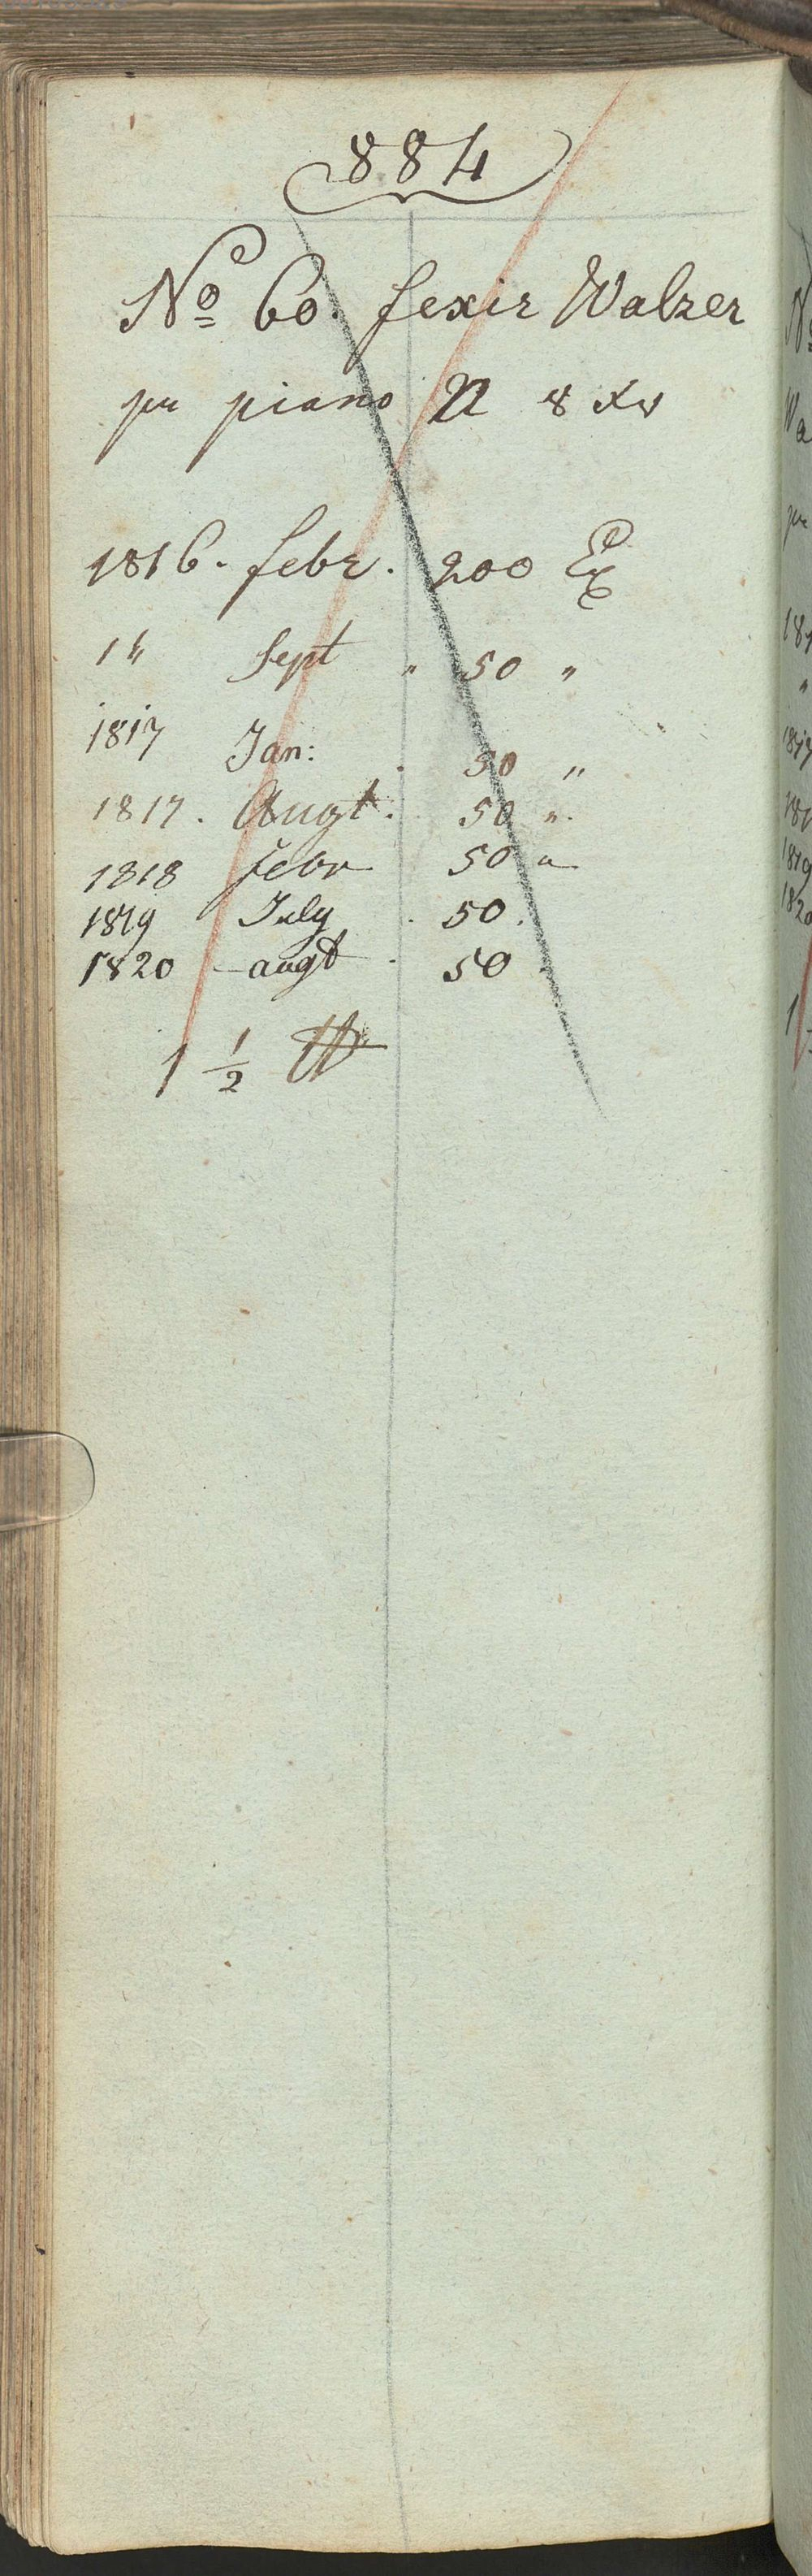 884
No 60. fexir Walzer
pr piano n 8 xr
1816. febr. 200 Ex
1" Sept " 50 "
1817 Jan: . 50 "
1817. Augt. 50 ".
1818 febr 50 "
1819 July . 50.
1820 – augt . 50 .
1 1/2